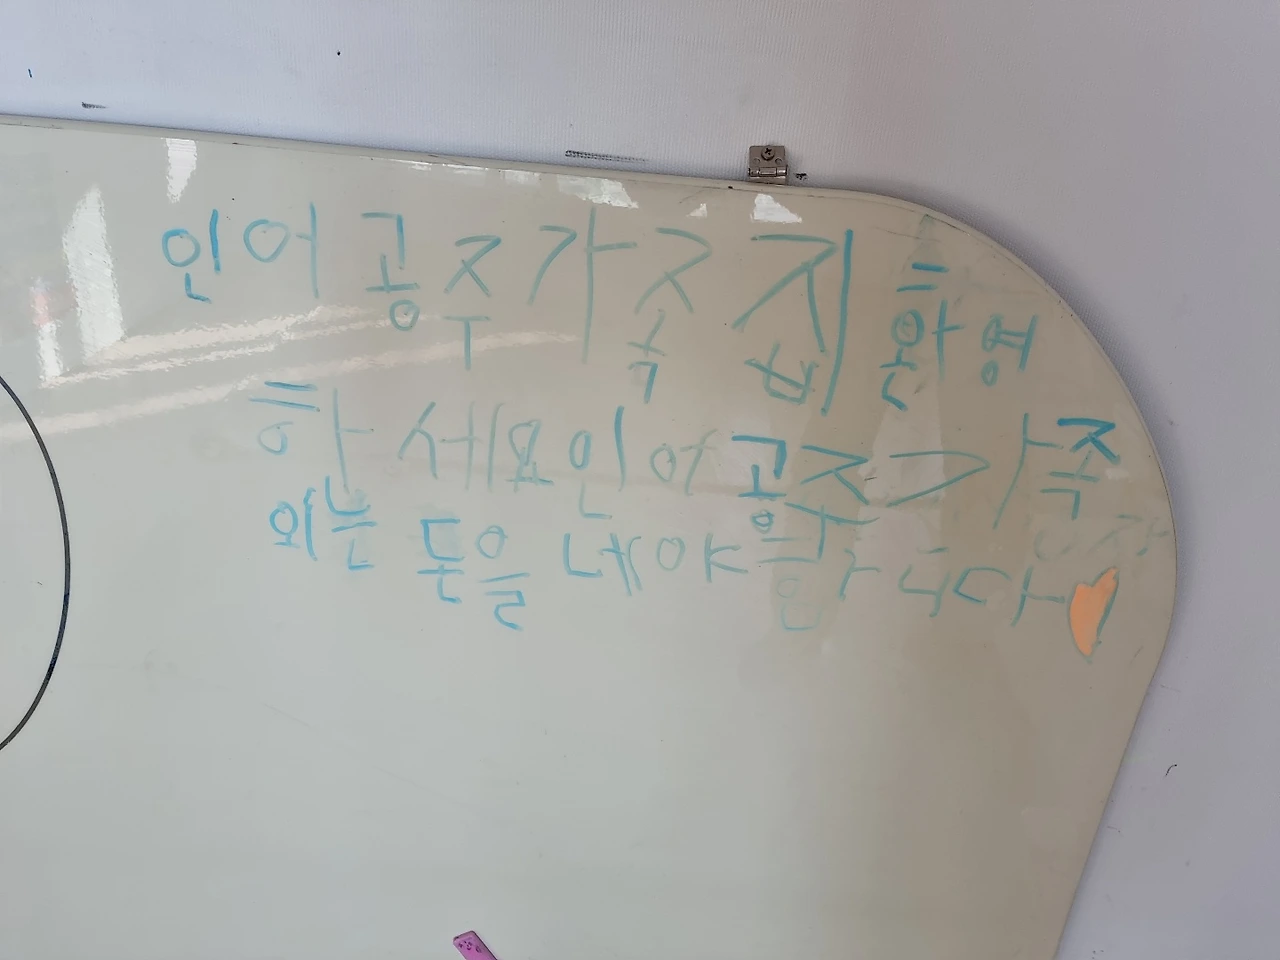 인어공주가족집 환영
하세요 인어공주가족
외는 돈을 내야 합니다